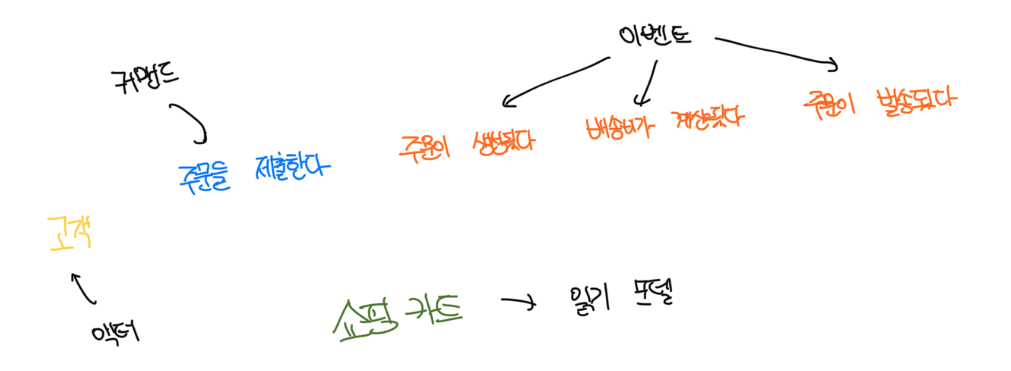 이벤트
커맨드
주문이 생성됐다
배송비가 계산됐다
주문이 발송됐다
주문을 제출한다
고객
액터
쇼핑 카트
읽기 모델